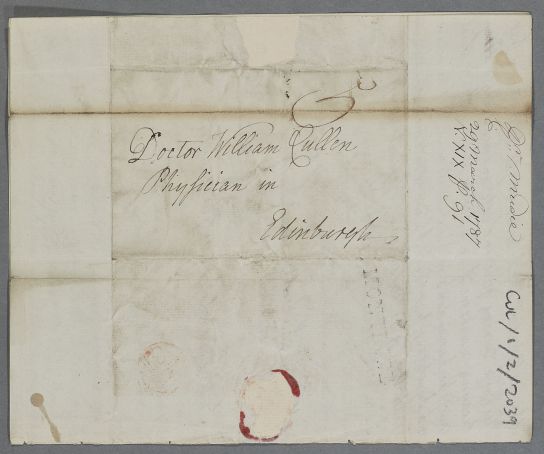 Doctor William Cullen
Physician in
Edinburgh
Dr. Mudie
29 March 1787
V. XIX p. 91
CUL/1/2/2039